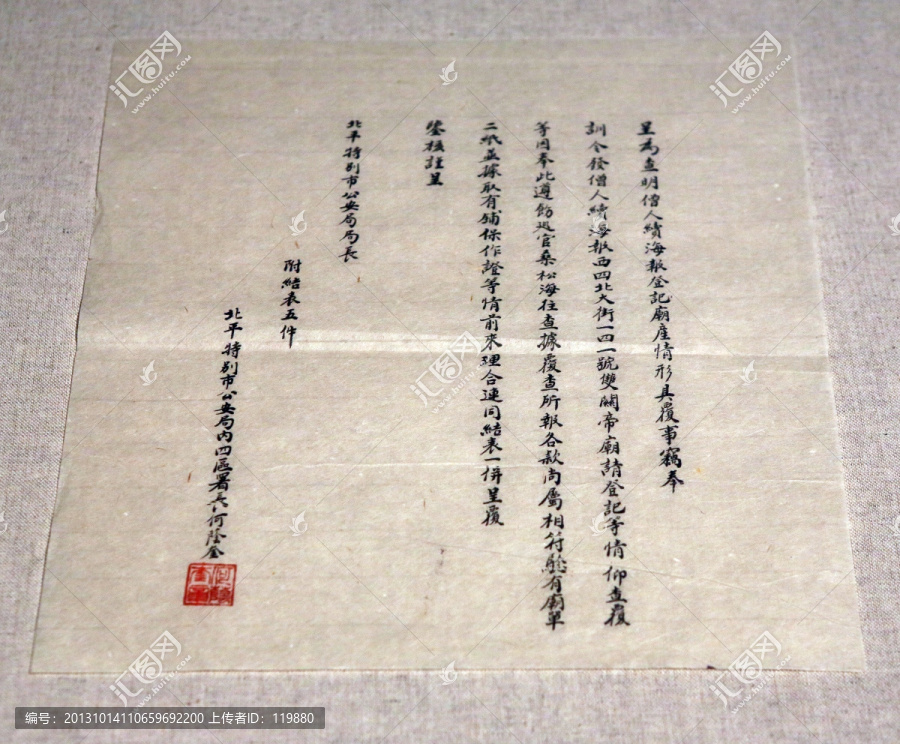 呈為查明僧人續海報登記廟産情形具覆事竊奉
訓令發僧人續海報西四北大街一四一號雙關帝廟請登記等情仰查覆
等因奉此遵飭巡官桑松海往查據覆查所報各款尚屬相符驗有廟單
二紙並據取有舖保作證等情前來理合連同結表一倂呈覆
鑒核謹呈
北平特别市公安局局長
附結表五件
北平特别市公安局內四區署長何蔭奎
汇图网
www.huitu.com
编号：20131014110659692200 上传者ID：119880